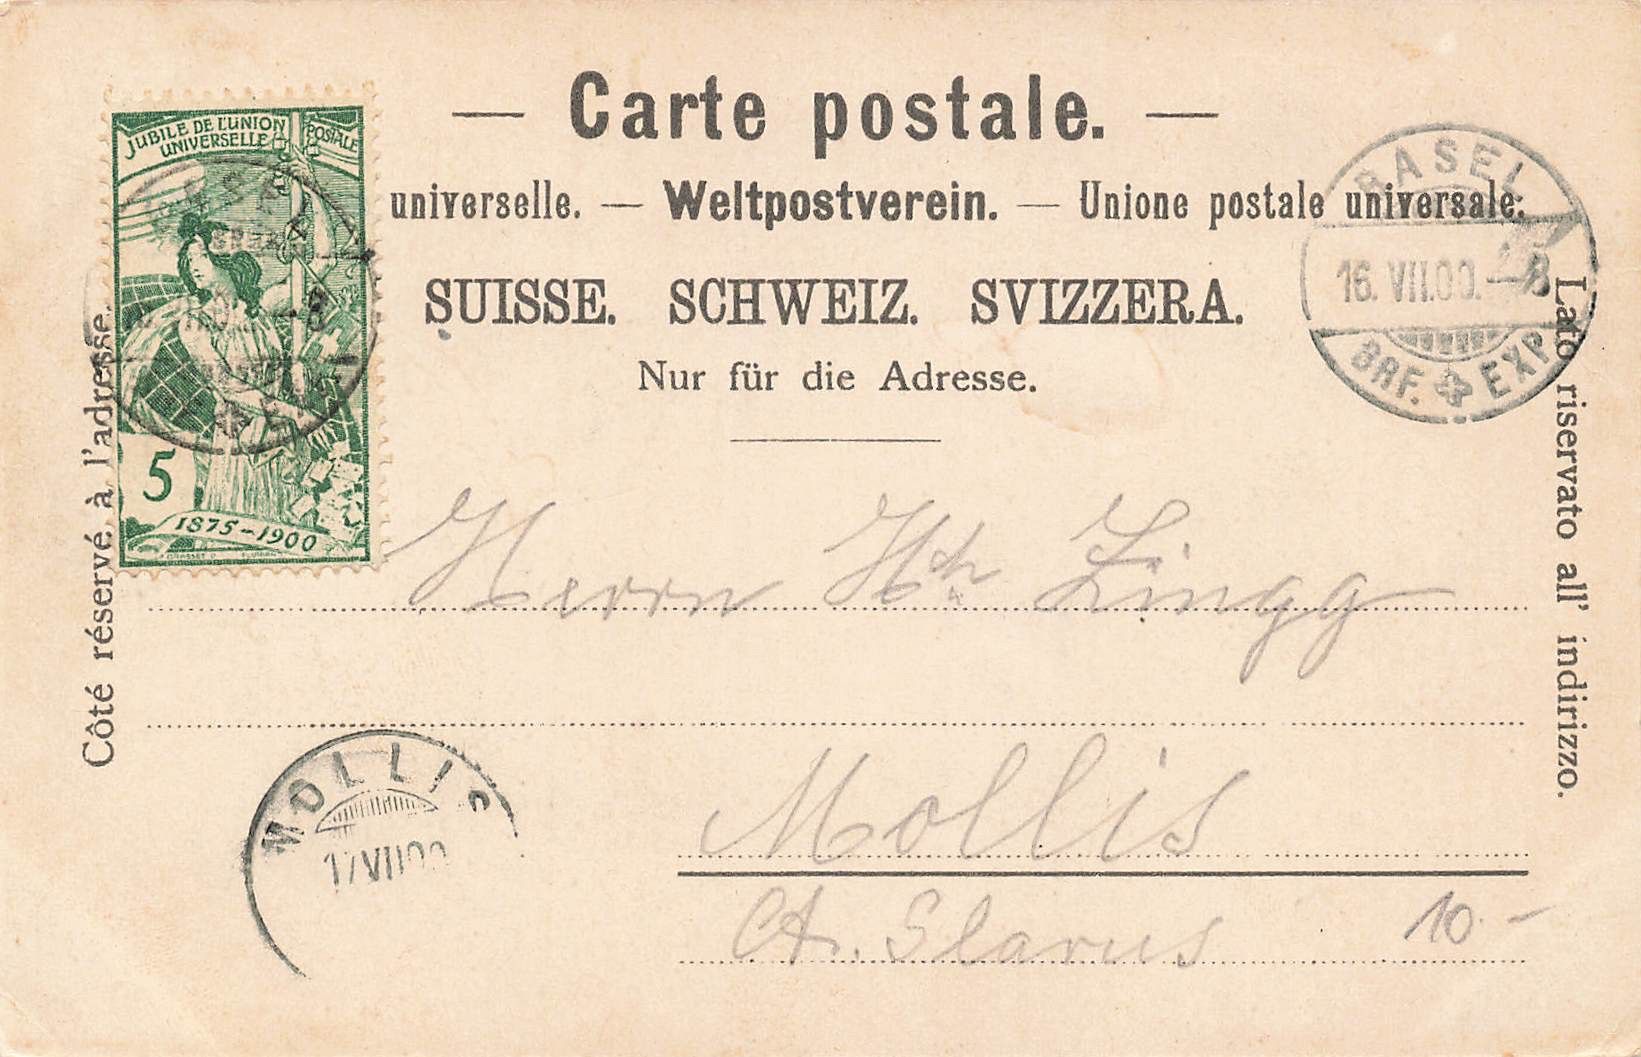 — Carte postale. —
universelle. — Weltpostverein. — Unione postale universale.
SUISSE. SCHWEIZ. SVIZZERA.
Nur für die Adresse.
Côté réservé à l'adresse.
Lato riservato all' indirizzo.
JUBILE DE L'UNION POSTALE
UNIVERSELLE
5
1875-1900
BASEL
16.VII.00.-8
BRF. EXP.
Herrn Hch Zingg
Mollis
Ct. Glarus
10.-
MOLLIS
17 VII 00